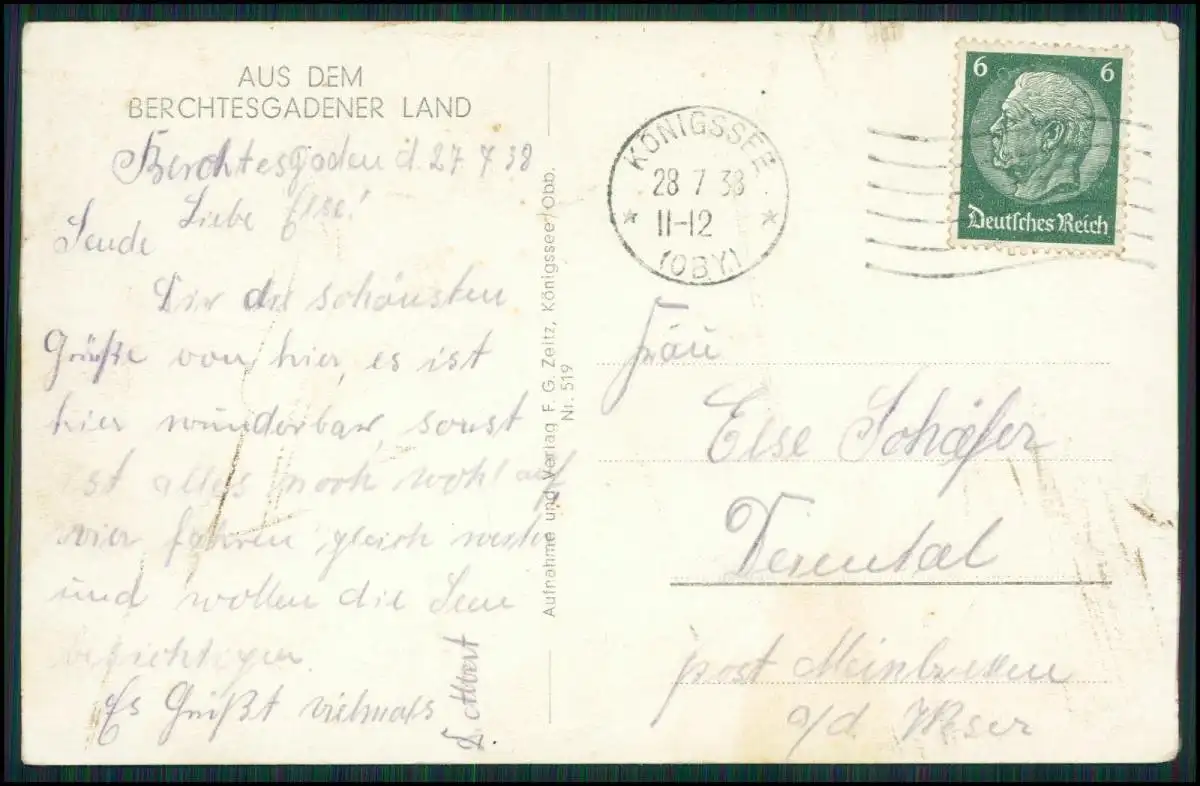 AUS DEM
BERCHTESGADENER LAND
Berchtesgaden d. 27 7 38
Liebe Else!
Sende
Dir die schönsten
Grüße von hier, es ist
hier wünderbar, sonst
ist alles noch wohl auf
wier fahren gleich weiter
und wollen die Seen
besichtigen.
Es Grüßt vielmals
Albert
Aufnahme und Verlag F. G. Zeitz, Königssee/Obb.
Nr. 519
KÖNIGSSEE
28 7 38
11-12
(OBY)
6 6
Deutsches Reich
Fräu
Else Schäfer
Derental
post Meinbrexen
a/d. Weser